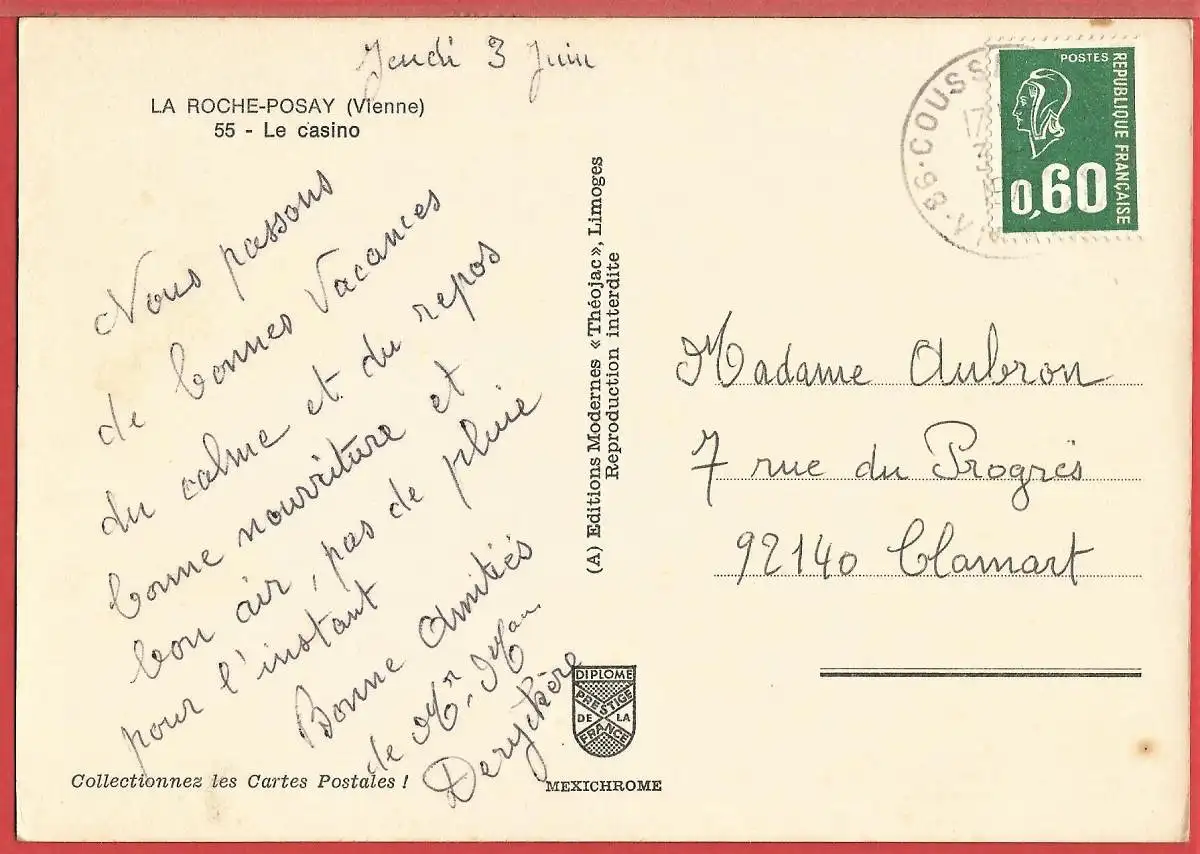 Jeudi 3 Juin
LA ROCHE-POSAY (Vienne)
55 - Le casino
Nous passons
de bonnes Vacances
du calme et du repos
bonne nourriture et
bon air, pas de pluie
pour l'instant
Bonne Amitiés
de Mr Mam
Deryckère
Collectionnez les Cartes Postales !
(A) Editions Modernes «Théojac», Limoges
Reproduction interdite
DIPLOME
PRESTIGE
DE LA
FRANCE
MEXICHROME
86-COUSS
17
POSTES
REPUBLIQUE FRANÇAISE
0,60
Madame Aubron
7 rue du Progrès
92140 Clamart